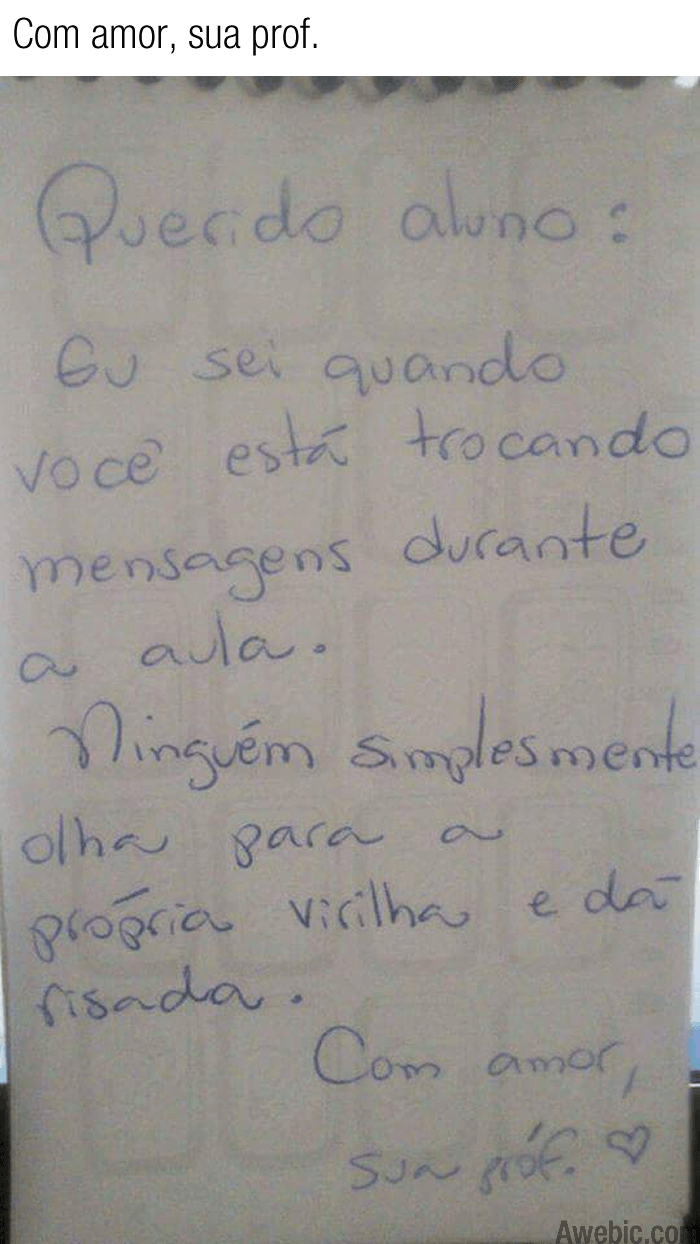 Com amor, sua prof.
Querido aluno:
Eu sei quando
você está trocando
mensagens durante
a aula.
Ninguém simplesmente
olha para a
própria virilha e dá
risada.
Com amor,
sua próf. ♡
Awebic.com